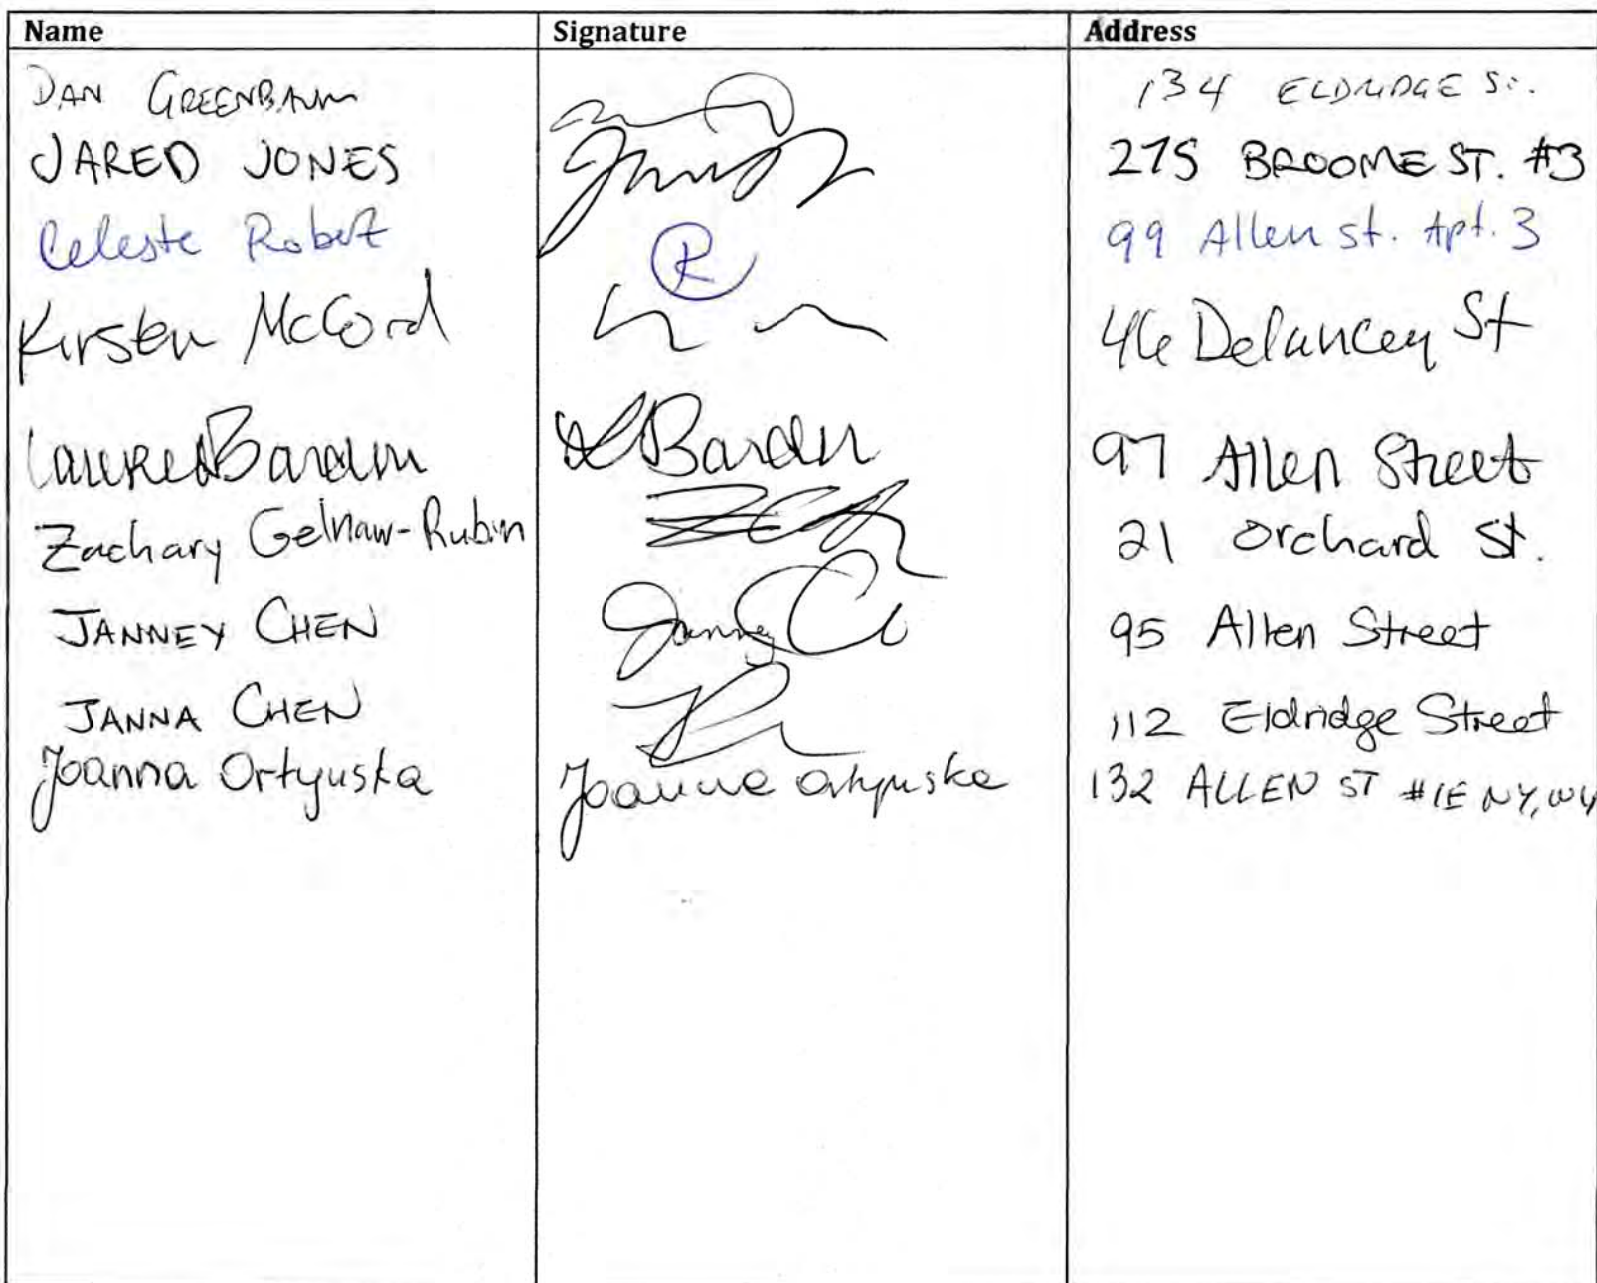 Name Signature Address
DAN GREENBAUM 134 ELDRIDGE St.
JARED JONES 275 BROOME ST. #3
Celeste Robert R 99 Allen st. Apt. 3
Kirsten McCord 46 Delancey St
Lauren Bardin L Bardin 97 Allen Street
Zachary Gelnaw-Rubin 21 Orchard St.
JANNEY CHEN Janney C 95 Allen Street
JANNA CHEN 112 Eldridge Street
Joanna Ortyuska Joanna Ortyuska 132 ALLEN ST #1E NY, NY